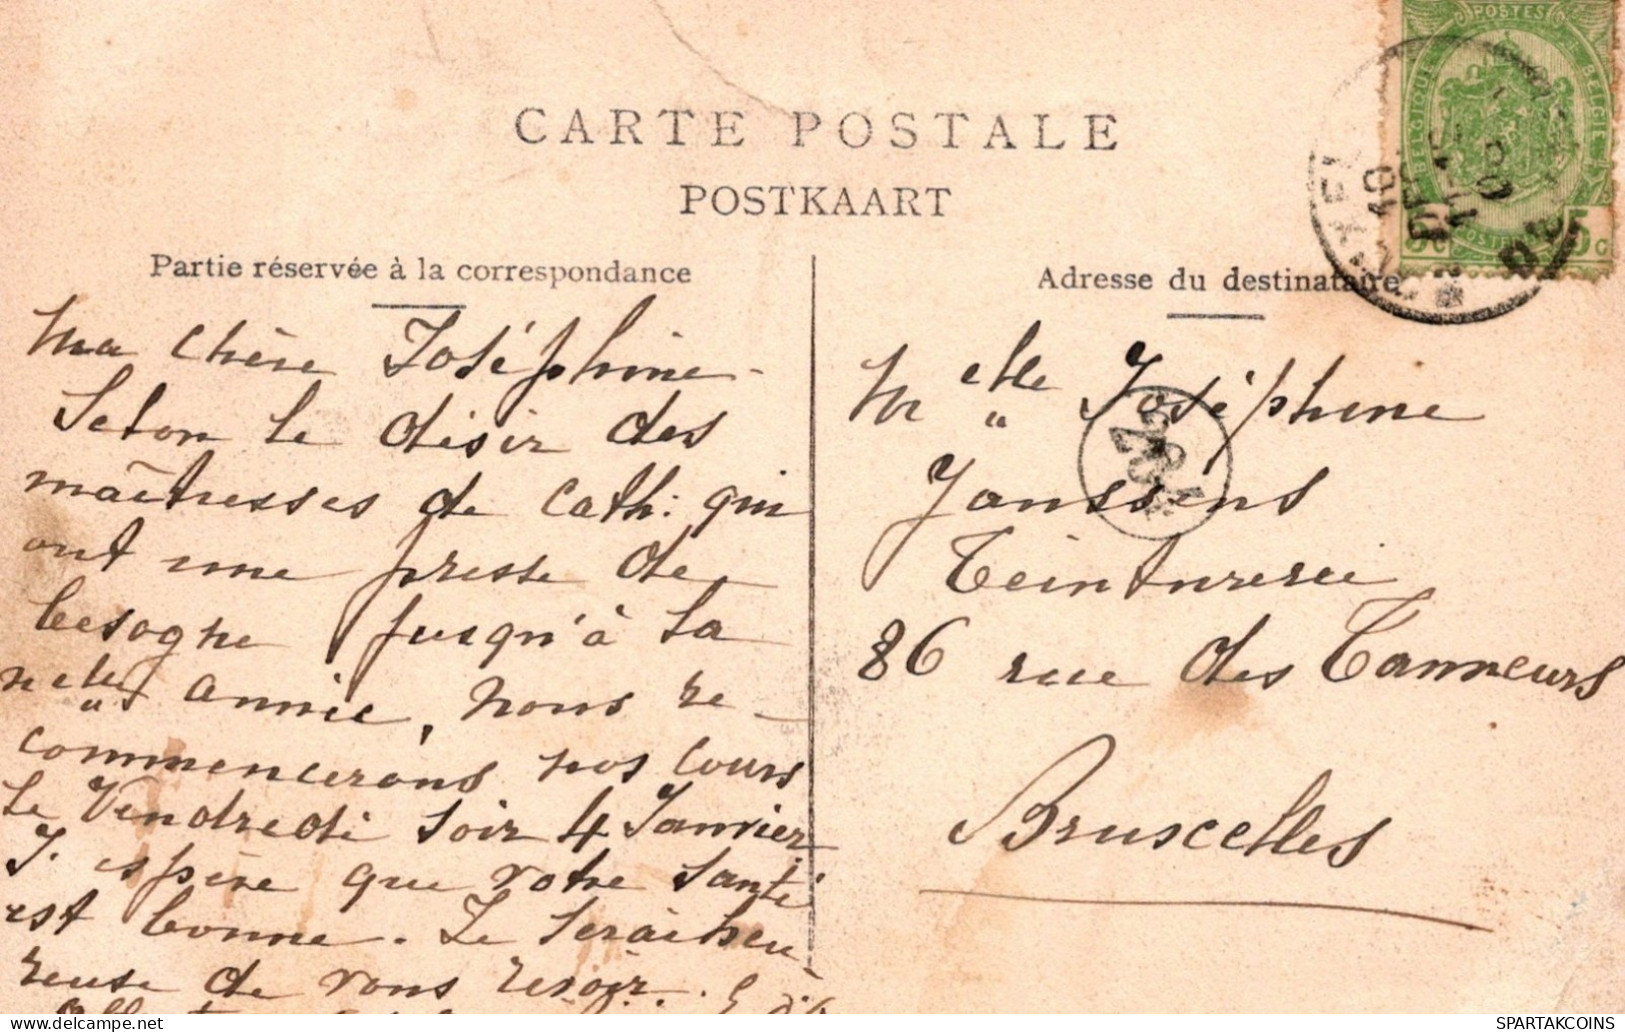 CARTE POSTALE
POSTKAART
Partie réservée à la correspondance
Ma chère Joséphine
Selon le désir des
maîtresses de Cath: qui
ont une presse de
besogne jusqu'à la
nelle année, nous re-
commencerons nos cours
le Vendredi soir 4 Janvier
J'espère que votre santé
est bonne. Je serai heu-
reuse de vous revoir.
Adresse du destinataire
Melle Joséphine
Janssens
Teinturerie
86 rue des Tanneurs
Bruxelles
POSTES
BELGIQUE
BELGIE
5c
10
DEC
SPARTAKCOINS